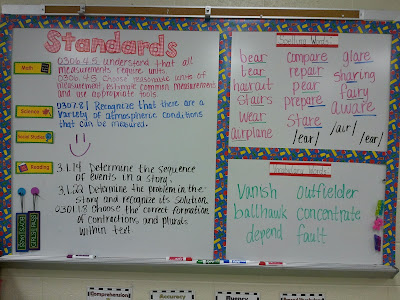 Standards
Math
0306.4.5 Understand that all
measurements require units
0306.4.5 Choose reasonable units of
measurement, estimate common measurements
and use appropriate tools.
Science
0307.8.1 Recognize that there are a
variety of atmospheric conditions
that can be measured.
Social Studies
Reading
3.1.14 Determine the sequence
of events in a story.
3.1.22 Determine the problem in the
story and recognize its solution.
0301.1.8 Choose the correct formation
of contractions and plurals
within text.
Spelling Words
bear
tear
haircut
stairs
wear
airplane
compare
repair
pear
prepare
stare
/ear/
glare
sharing
fairy
aware
/air/
/ear/
Vocabulary Words
Vanish outfielder
ballhawk concentrate
depend fault
Comprehension
Accuracy
Fluency